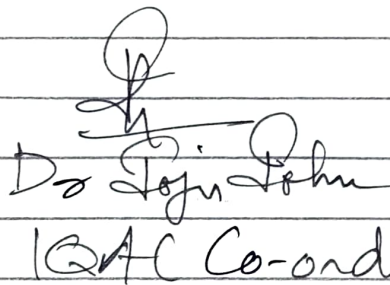 Dr Joju John
IQAC Co-ord